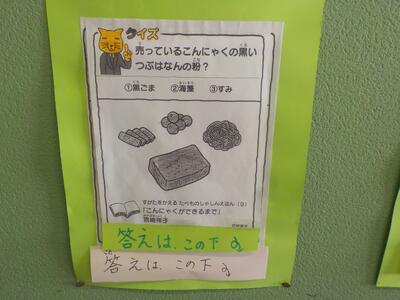 クイズ
売っているこんにゃくの黒い
つぶはなんの粉？
①黒ごま ②海藻 ③すみ
すがたをかえる たべものしゃしんえほん（9）
「こんにゃくができるまで」
宮崎祥子
答えは、この下
答えは、この下